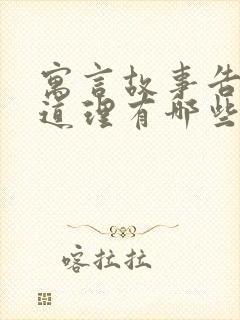 寓言故事告
道理有哪些
喀拉拉